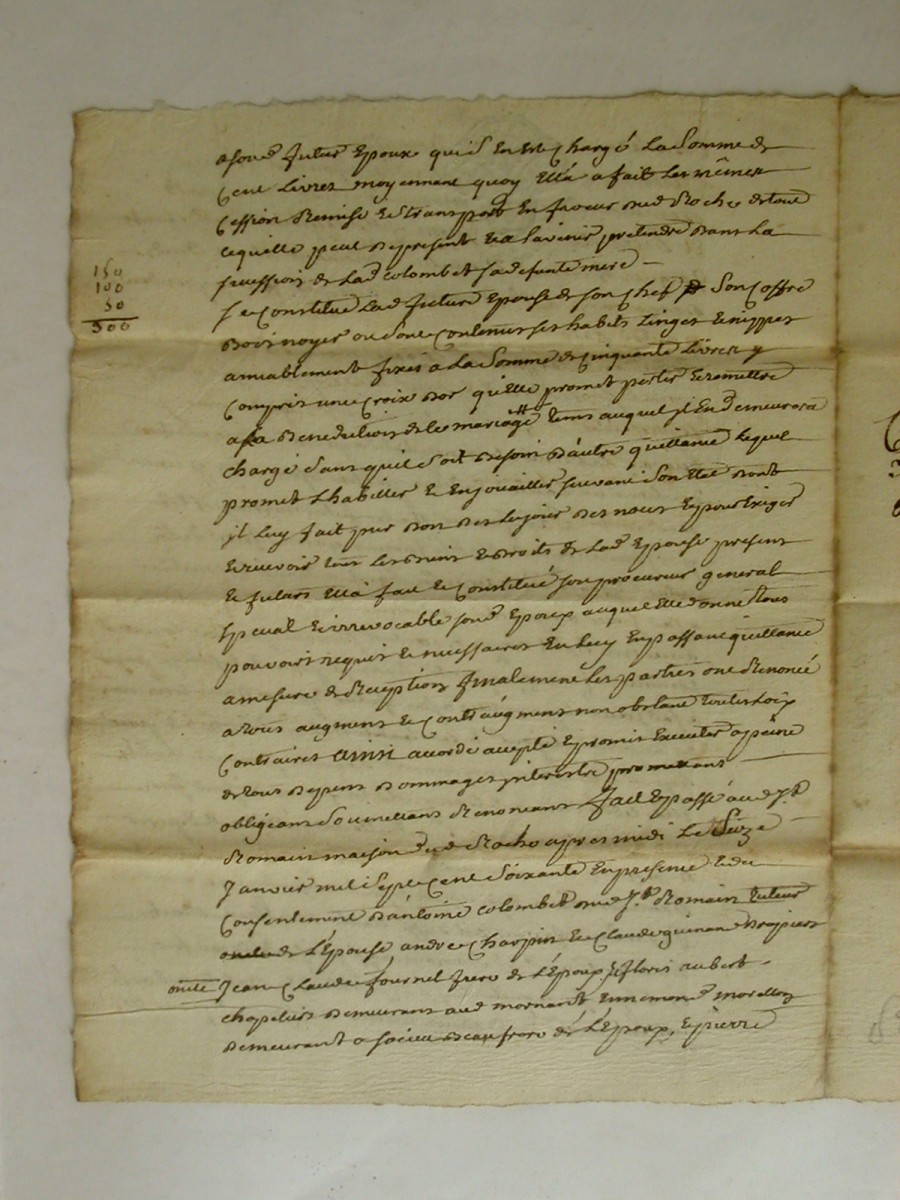 150
100
50
300
asond. futur Epoux qui s'En est chargé La Somme de
Cent Livres moyennant quoy Ella a fait Les mêmes
Cession Remise et transport En faveur dud. Roche de tout
cequelle peut Depresent Et a Lavenir pretendre Dans La
succession de Lad. colombet sa defunte mere —
se Constitue Lad. future Epouse de son chef son Coffre
Bois noyer contenant ses habits Linges Et nippes
amiablement fixés a La Somme de Cinquante Livres y
Compris une Croix d'or qu'Elle promet porter Et remettre
a La Benediction de Le mariage tems auquel jl En Demeurera
chargé Sans quil soit Besoin D'autre quittance Lequel
promet L'habiller Et Enjouailler suivant Son Etat Dont
jl Luy fait pur Don Des Le jour Des noces Et pour Exiger
Et recevoir tous Les Biens Et Droits de Lad. Epouse present
Et futurs Ella fait Et Constitué son procureur general
special Et irrevocable sond. Epoux auquel Elle donne tous
pouvoirs requis Et necessaires En Luy En passant quittance
a mesure de Reception finalement Les parties ont Renoncé
a tous augment Et Contraugment non obstant toutes Loix
Contraires ainsi accordé accepté Et promis Executer a peine
de tous Depens Dommages jnterestre promettans —
obligeans Soumettans Renonceans fait Et passé aud. St.
Romain maison dud. Roche apres midi Le Seize
Janvier mil Sept Cent Soixante En presence Et du
Consentement D'antoine colombet dud. St. Romain tuteur
de L'Epouse andre charpin Et Claude guinand Drapiers
oncle Jean Claude fournel frere de L'Epoux Et floris aubert
chapeliers Demeurans aud. mornant Ennemond morellon
Demeurant a Beaufrere de L'Epoux, Et pierre